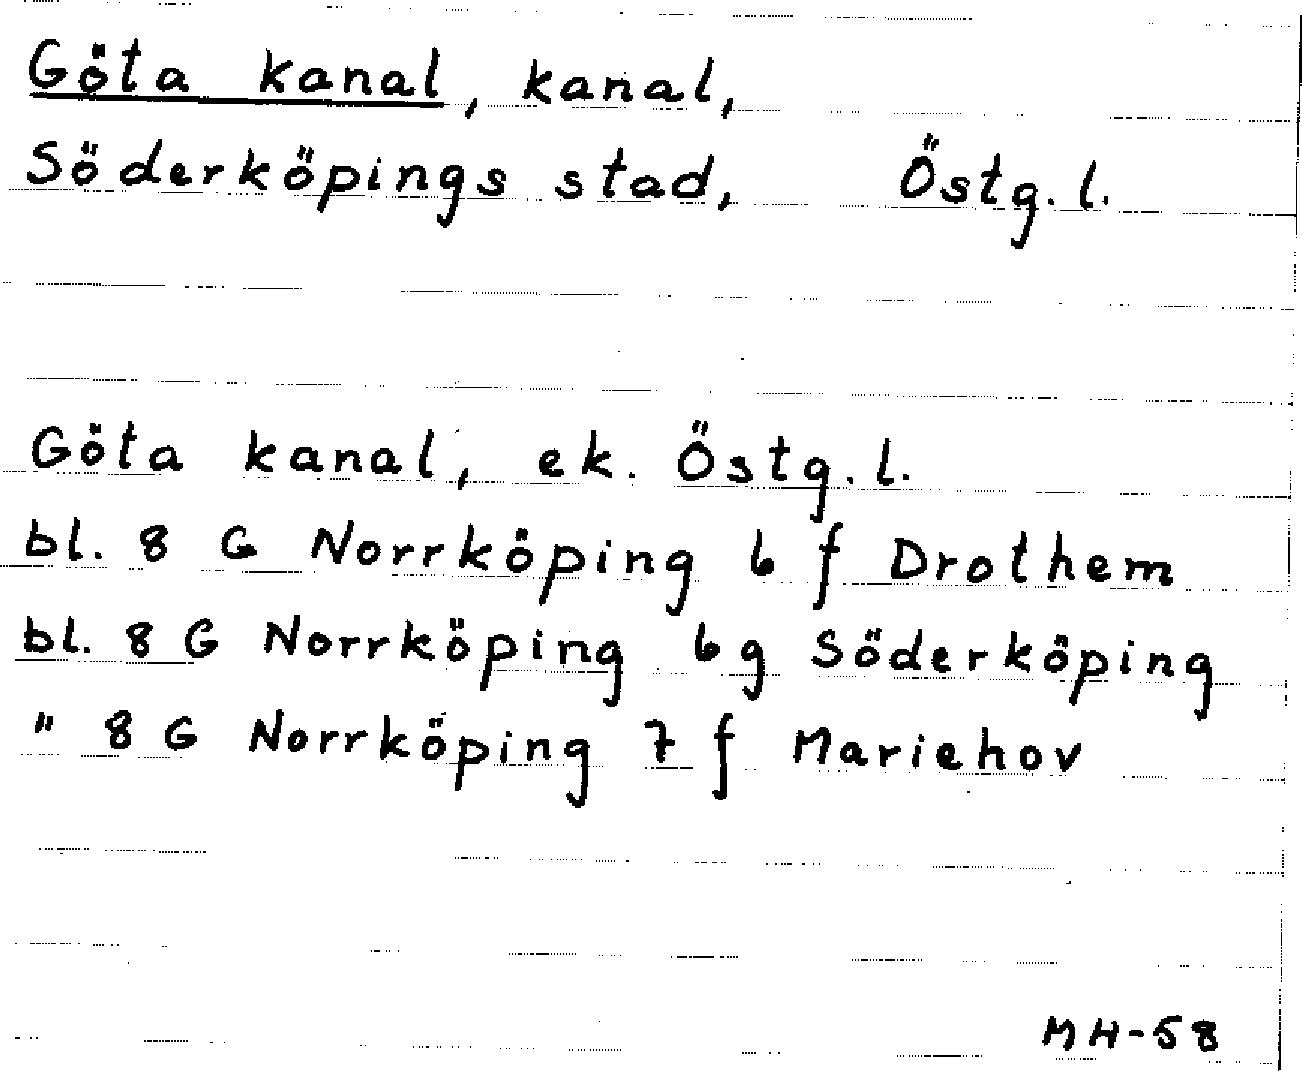 Göta kanal, kanal,
Söderköpings stad, Östg. l.
Göta kanal, ek. Östg. l.
bl. 8 G Norrköping 6 f Drothem
bl. 8 G Norrköping 6g Söderköping
" 8 G Norrköping 7 f Mariehov
MH-58